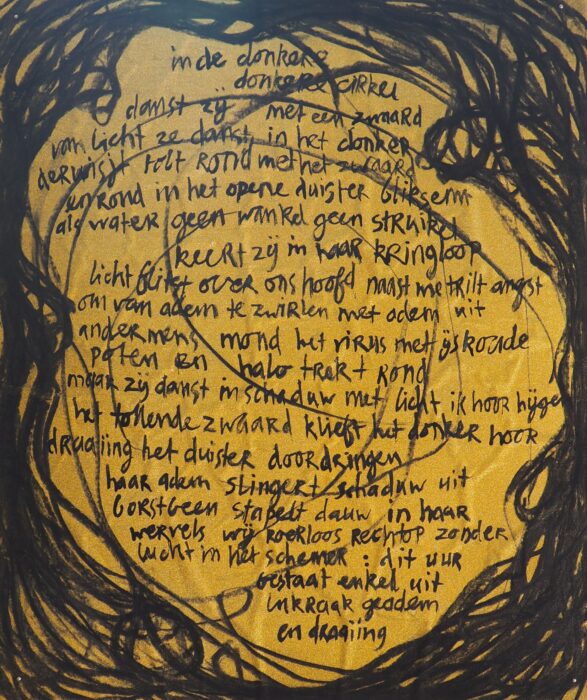 in de donkere
donkere cirkel
danst zij met een zwaard
van licht ze danst in het donker
derwisjt tolt rond met het zwaard
en rond in het opene duister bliksem
als water geen wankel geen struikel
keert zij in haar kringloop
licht flitst over ons hoofd naast me trilt angst
om van adem te zwirlen met adem uit
andermens mond het virus met ijskoude
poten en halo trekt rond
maar zij danst in schaduw met licht ik hoor hijgen
het tollende zwaard klieft het donker hoor
draaiing het duister doordringen
haar adem slingert schaduw uit
borstbeen stapelt dauw in haar
wervels wij roerloos rechtop zonder
lucht in het schemer : dit uur
bestaat enkel uit
inkraak geadem
en draaiing